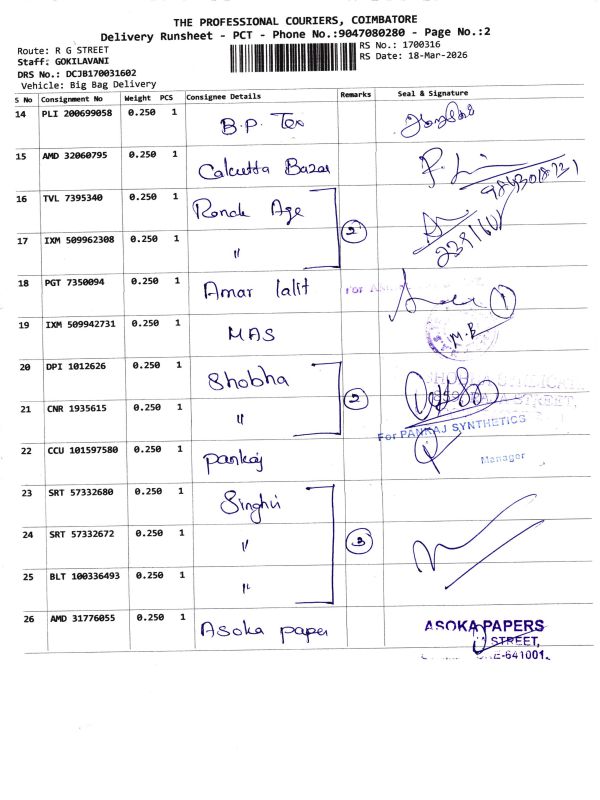 THE PROFESSIONAL COURIERS, COIMBATORE
Delivery Runsheet - PCT - Phone No.:9047080280 - Page No.:2
Route: R G STREET
RS No.: 1700316
Staff: GOKILAVANI
RS Date: 18-Mar-2026
DRS No.: DCJB170031602
Vehicle: Big Bag Delivery
S No Consignment No Weight PCS Consignee Details Remarks Seal & Signature
14 PLI 200699058 0.250 1 B.P. Tex
15 AMD 32060795 0.250 1 Calcutta Bazar
16 TVL 7395340 0.250 1 Ronak Age
2
17 IXM 509962308 0.250 1 "
18 PGT 7350094 0.250 1 Amar lalit For 1
19 IXM 509942731 0.250 1 MAS M.B
20 DPI 1012626 0.250 1 Shobha
2
21 CNR 1935615 0.250 1 "
For PANKAJ SYNTHETICS
22 CCU 101597580 0.250 1 Pankaj
Manager
23 SRT 57332680 0.250 1 Singhvi
24 SRT 57332672 0.250 1 " 3
25 BLT 100336493 0.250 1 "
26 AMD 31776055 0.250 1 Asoka paper ASOKA PAPERS
STREET,
-641001.